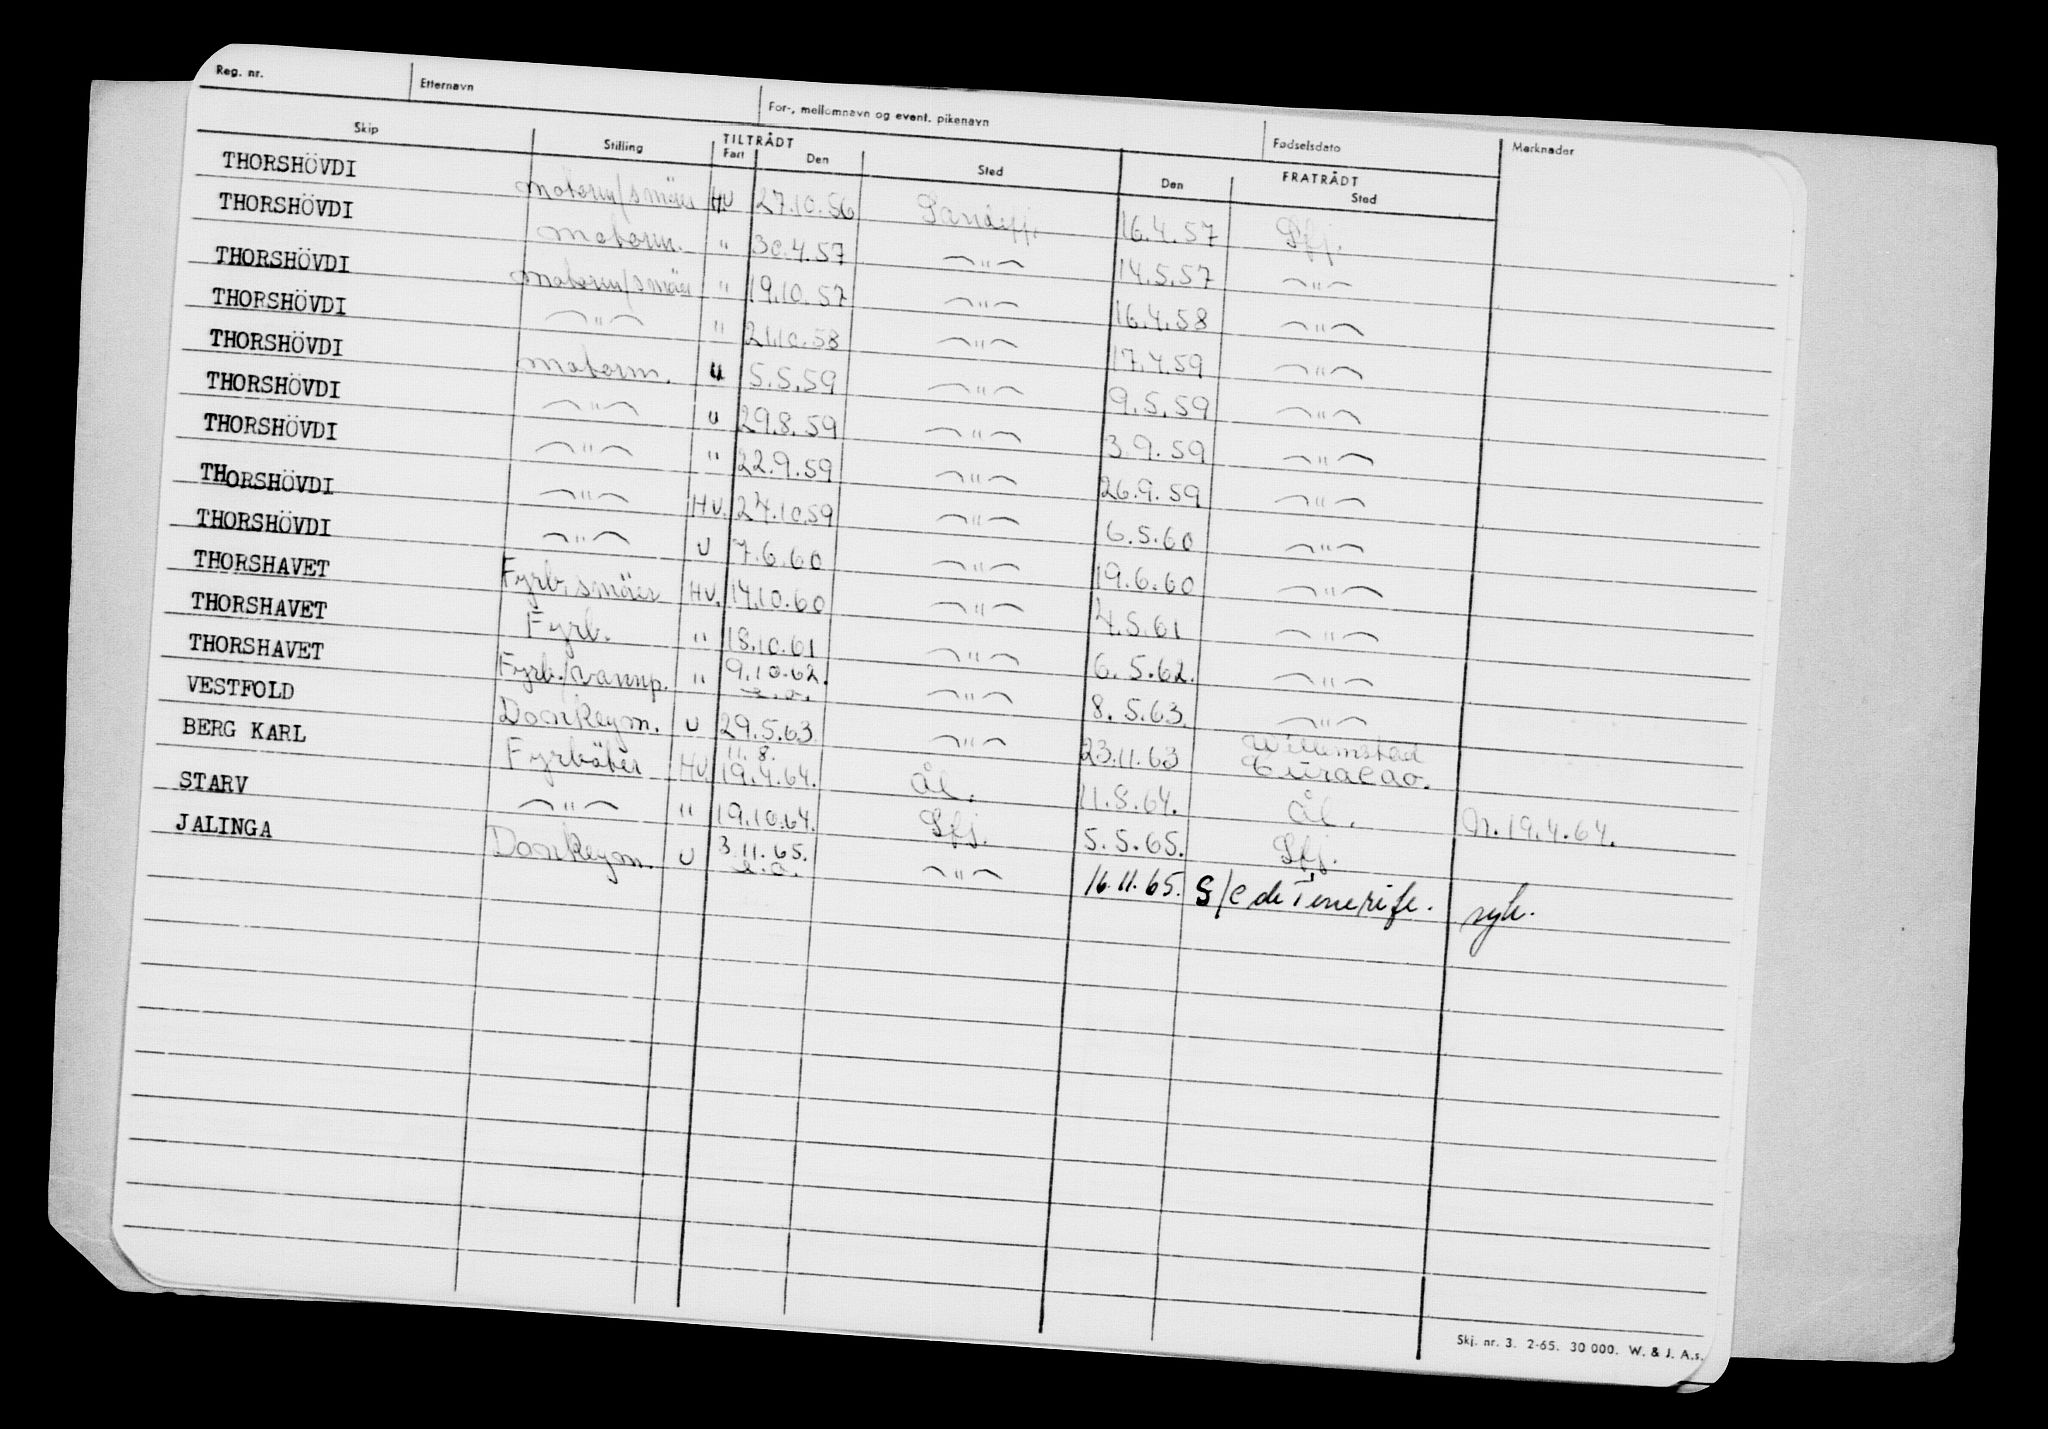 Reg. nr. Etternavn For-, mellomnavn og event. pikenavn Fødselsdato Merknader
Skip Stilling TILTRÅDT FRATRÅDT
Fart Den Sted Den Sted
THORSHÖVDI motorm/smörer HV 27.10.56 Sandefj. 16.4.57 Sfj.
THORSHÖVDI motorm. " 30.4.57 —"— 14.5.57 —"—
THORSHÖVDI motorm/smörer " 19.10.57 —"— 16.4.58 —"—
THORSHÖVDI —"— " 21.10.58 —"— 17.4.59 —"—
THORSHÖVDI motorm. U 5.5.59 —"— 9.5.59 —"—
THORSHÖVDI —"— U 29.8.59 —"— 3.9.59 —"—
THORSHÖVDI —"— " 22.9.59 —"— 26.9.59 —"—
THORSHÖVDI —"— HV. 27.10.59 —"— 6.5.60 —"—
THORSHÖVDI —"— U 7.6.60 —"— 19.6.60 —"—
THORSHAVET Fyrb.smörer HV. 14.10.60 —"— 4.5.61 —"—
THORSHAVET Fyrb. " 18.10.61 —"— 6.5.62. —"—
THORSHAVET Fyrb./vannp. " 9.10.62. —"— 8.5.63. —"—
VESTFOLD Donkeym. U 29.5.63. —"— 23.11.63 Willemstad Curacao.
BERG KARL Fyrböter HV. 11.8. 19.4.64. Ål. 11.8.64. Ål. 19.4.64.
STARV —"— " 19.10.64. Sfj. 5.5.65. Sfj.
JALINGA Donkeym. U 3.11.65. —"— 16.11.65. S/C de Tenerife. syk.
Skj. nr. 3. 2-65. 30 000. W. & J. A.s.